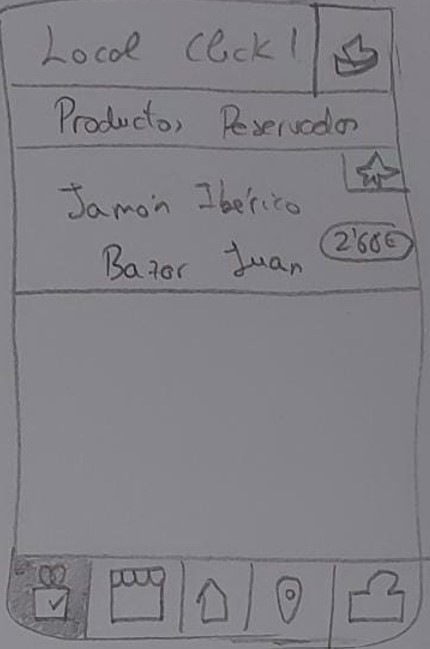 Local Click!
Productos Reservados
Jamón Ibérico
2'60€
Bazar Juan